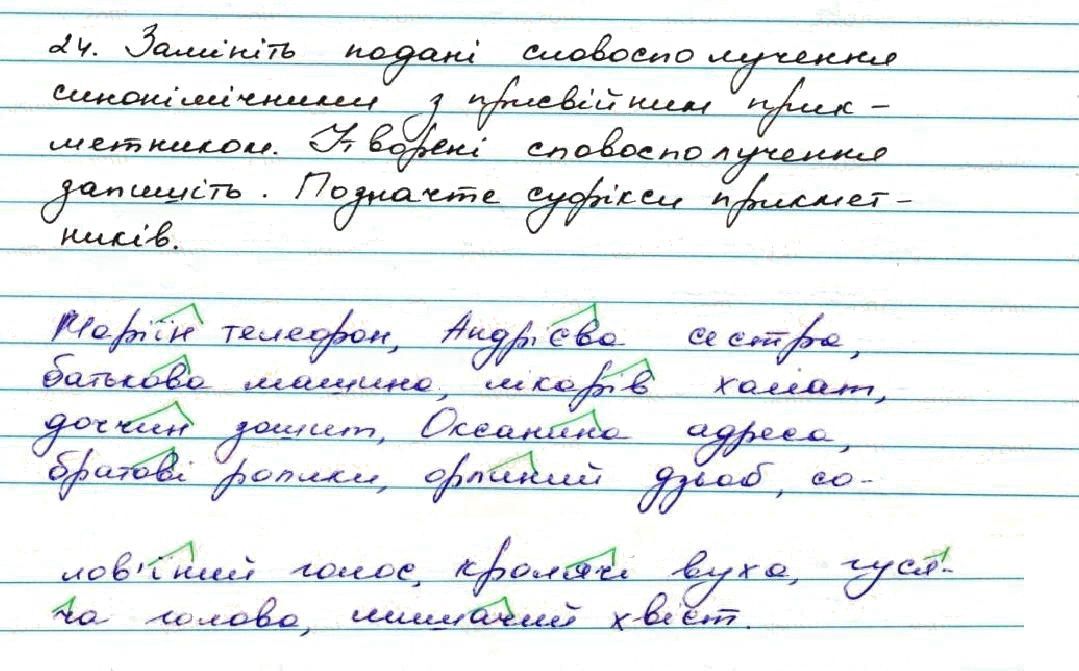 24. Замініть подані словосполучення
синонімічними з присвійним прик-
метником. Утворені словосполучення
запишіть. Позначте суфікси прикмет-
ників.
Маріїн телефон, Андрієва сестра,
батькова машина, лікарів халат,
доччин зошит, Оксанина адреса,
братові ролики, орлиний дзьоб, со-
лов'їний голос, кролячі вуха, гуся-
ча голова, мишачий хвіст.